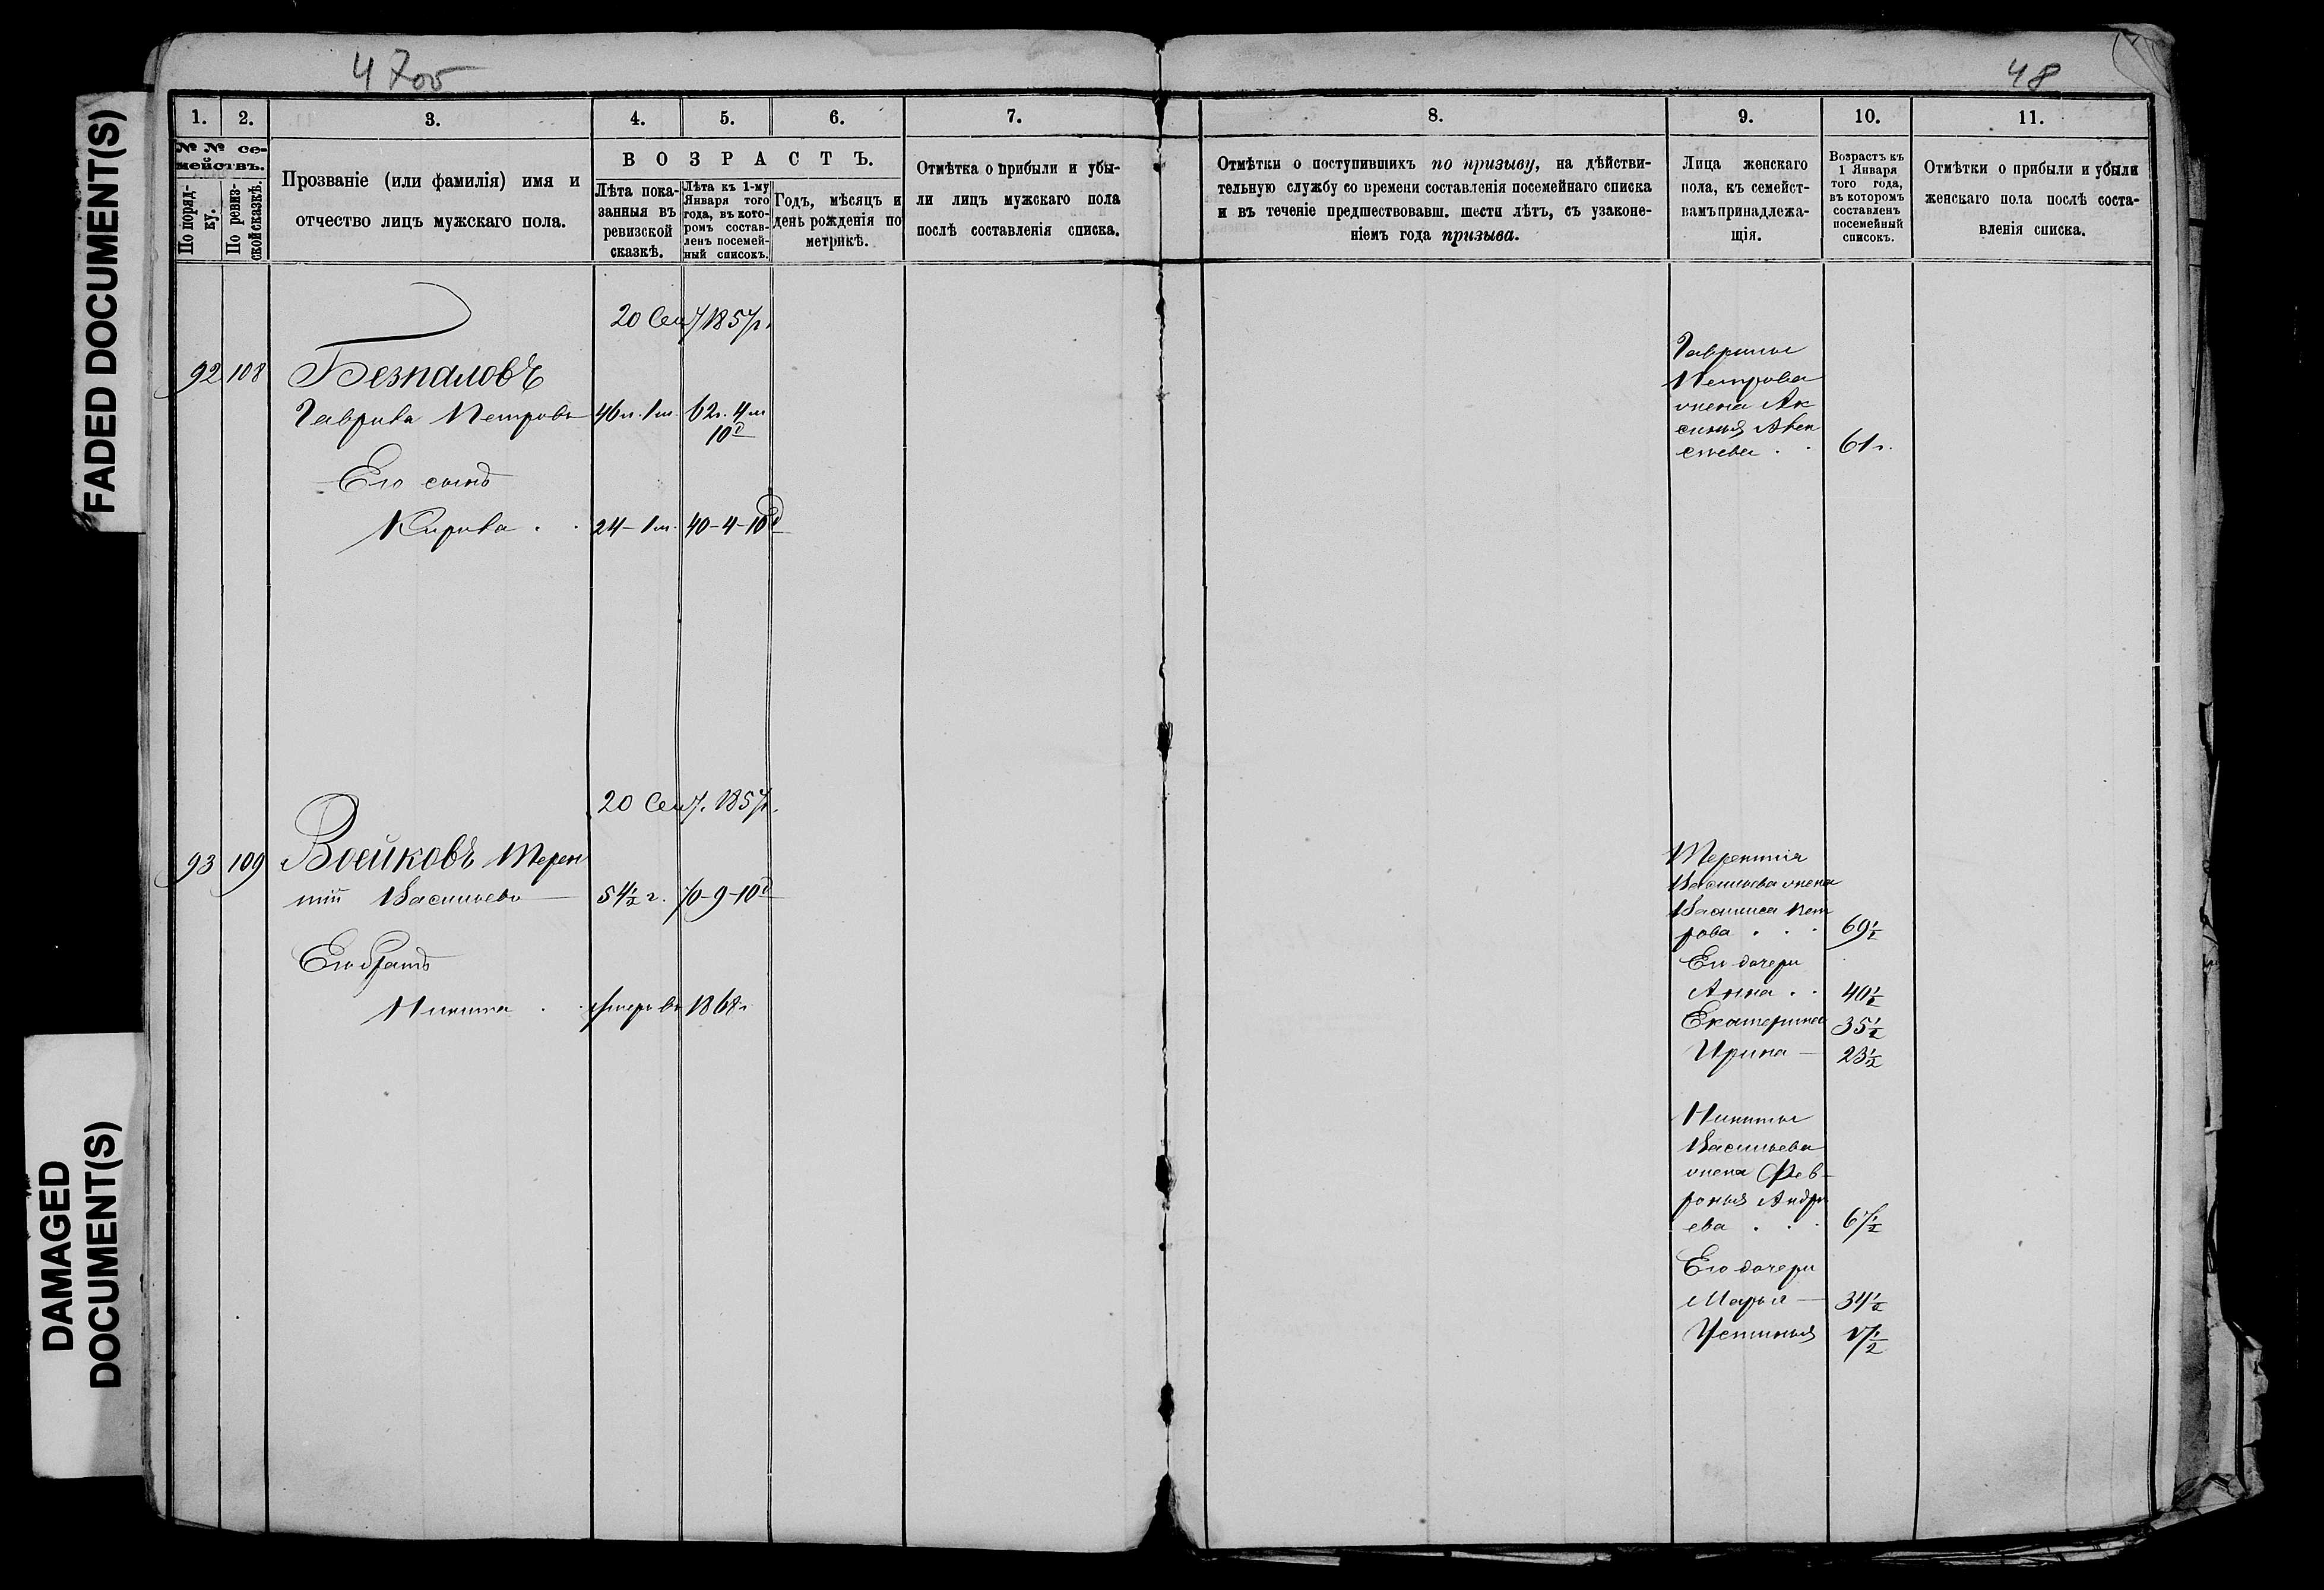 47об
48
FADED DOCUMENT(S)
DAMAGED
DOCUMENT(S)
1.
2.
3.
4.
5.
6.
7.
8.
9.
10.
11.
№ № се-
мействъ.
По поряд-
ку.
По ревиз-
ской сказкѣ.
Прозваніе (или фамилія) имя и
отчество лицъ мужскаго пола.
ВОЗРАСТЪ.
Лѣта пока-
занныя въ
ревизской
сказкѣ.
Лѣта къ 1-му
Января того
года, въ кото-
ромъ состав-
ленъ посемей-
ный списокъ.
Годъ, мѣсяцъ и
день рожденія по
метрикѣ.
Отмѣтка о прибыли и убы-
ли лицъ мужскаго пола
послѣ составленія списка.
Отмѣтки о поступившихъ по призыву, на дѣйстви-
тельную службу со времени составленія посемейнаго списка
и въ теченіе предшествовавш. шести лѣтъ, съ узаконе-
ніемъ года призыва.
Лица женскаго
пола, къ семейст-
вамъ принадлежа-
щія.
Возрастъ къ
1 Января
того года,
въ которомъ
составленъ
посемейный
списокъ.
Отмѣтки о прибыли и убыли
женскаго пола послѣ соста-
вленія списка.
20 Сен 1857г.
92 108 Безпаловъ
Гаврила Петровъ 46л. 1м. 62г. 4м
10д
Его сынъ
Кирила . . 24-1м. 40-4-10д
Гаврилы
Петрова
жена Ак
синья Алек
сѣева . . 61г.
20 Сен. 1857г.
93 109 Воейковъ Терен
тій Васильевъ 54½ г. 70-9-10д
Его братъ
Никита . умеръ въ 1868г
Терентія
Васильева жена
Василиса Пет
рова . . . 69½
Его дочери
Анна . . 40½
Екатерина 35½
Ирина — 23½
Никиты
Васильева
жена Фев-
ронья Андре
ева . . . 67½
Его дочери
Марья — 34½
Устинья 17½